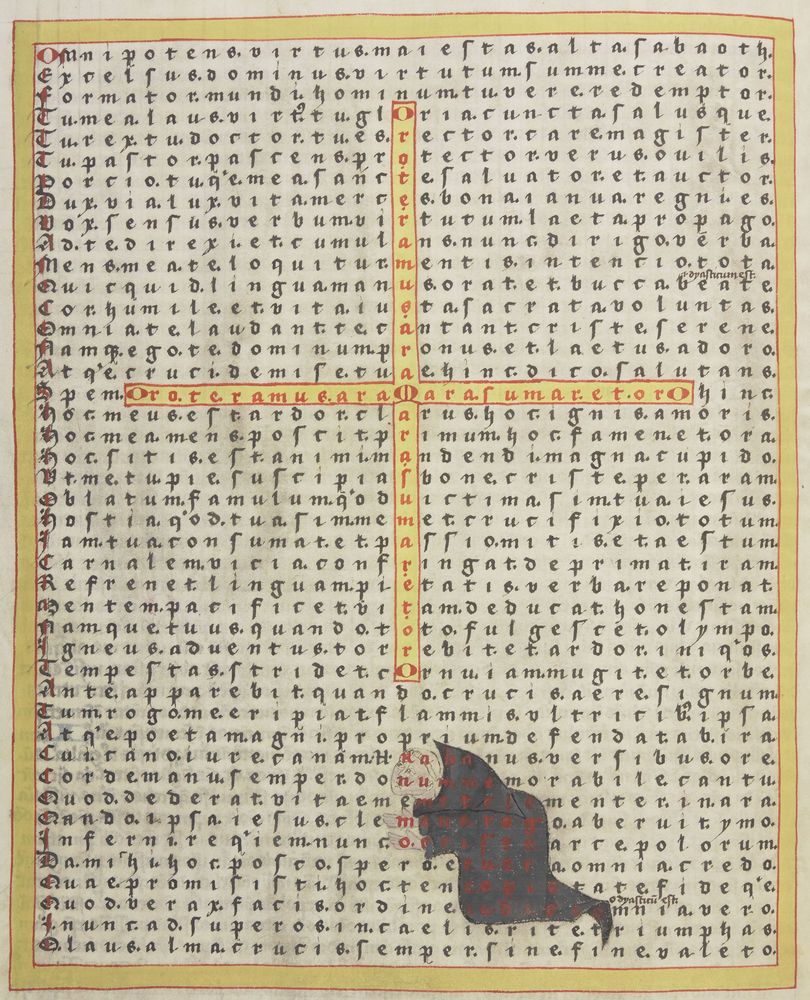 Omnipotens. virtus. maiestas. alta. sabaoth.
Excelsus. dominus. virtutum. summe. creator.
Formator. mundi. hominum. tu. vere. redemptor.
Tu. mea. laus. virt'. tu. gloria. cuncta. salusque.
Tu. rex. tu. doctor. tu. es. rector. care. magister.
Tu. pastor. pascens. protector. verus. ouilis.
Porcio. tu. q'e. mea. sancte. saluator. et. auctor.
Dux. via. lux. vita. merces. bona. ianua. regni. es.
Vox. sensus. verbum. virtutum. laeta. propago.
Ad. te. direxi. et. cumulans. nunc. dirigo. verba.
Mens. mea. te. loquitur. mentis. intencio. tota.
Quicquid. lingua. manus. orat. et. bucca. beate.
Cor. humile. et. vita. iusta. sacrata. voluntas.
Omnia. te. laudant. te. cantant. criste. serene.
Namq. ego. te. dominum. pronus. et. laetus. adoro.
Atq'e. cruci. demise. tuae. hinc. dico. salutans.
Spem. Oro. te. ramus. ara. ara. sumar. et. oro hinc.
Hoc. meus. est. ardor. clarus. hoc. ignis. amoris.
Hoc. mea. mens. poscit. primum. hoc. famen. et. ora.
Hoc. sitis. est. animi. mandendi. magna. cupido.
Vt. me. tu. pie. suscipias. bone. criste. per. aram.
Oblatum. famulum. q'od. victima. sim. tua. iesus.
Hostia. q'od. tua. sim. me et. crucifixio. totum.
Iam. tua. consumat. et. passio. mitis. et. aestum.
Carnalem. vicia. confringat. deprimat. iram.
Refrenet. linguam. pietatis. verba. reponat.
Mentem. pacificet. vitam. deducat. honestam.
Namque. tuus. quando. toto. fulgescet. olympo.
Igneus. aduentus. torrebit. et. ardor. iniq'os.
Tempestas. stridet. cornu. iam. mugit. et. orbe.
Ante. apparebit. quando. crucis. aere. signum.
Tum. rogo. me. eripiat. flammis. vltricib'. ipsa.
Atq'e. poeta. magni. proprium. defendat. abira.
Cui. cano. iure. canam. Hrabanus. versibus. ore.
Corde. manu. semper. donum. memorabile. cantu.
Quod. dederat. vitae. memet. clementer. in. ara.
Quando. ipsa. iesus. clemens. tego. ab. eruit. ymo.
Inferni. req'iem. nunc. o. criste. arce. polorum.
Da. mihi. hoc. posco. spero. et. que. omnia. credo.
Quae. promisisti. hoc. teneo. pietate. fideq'e.
Quod. verax. facis. ordine. iudicis. omnia. vero.
Inunc. ad. superos. in. caelis. rite. triumphas.
O. laus. alma. crucis. semper. sine. fine. valeto.